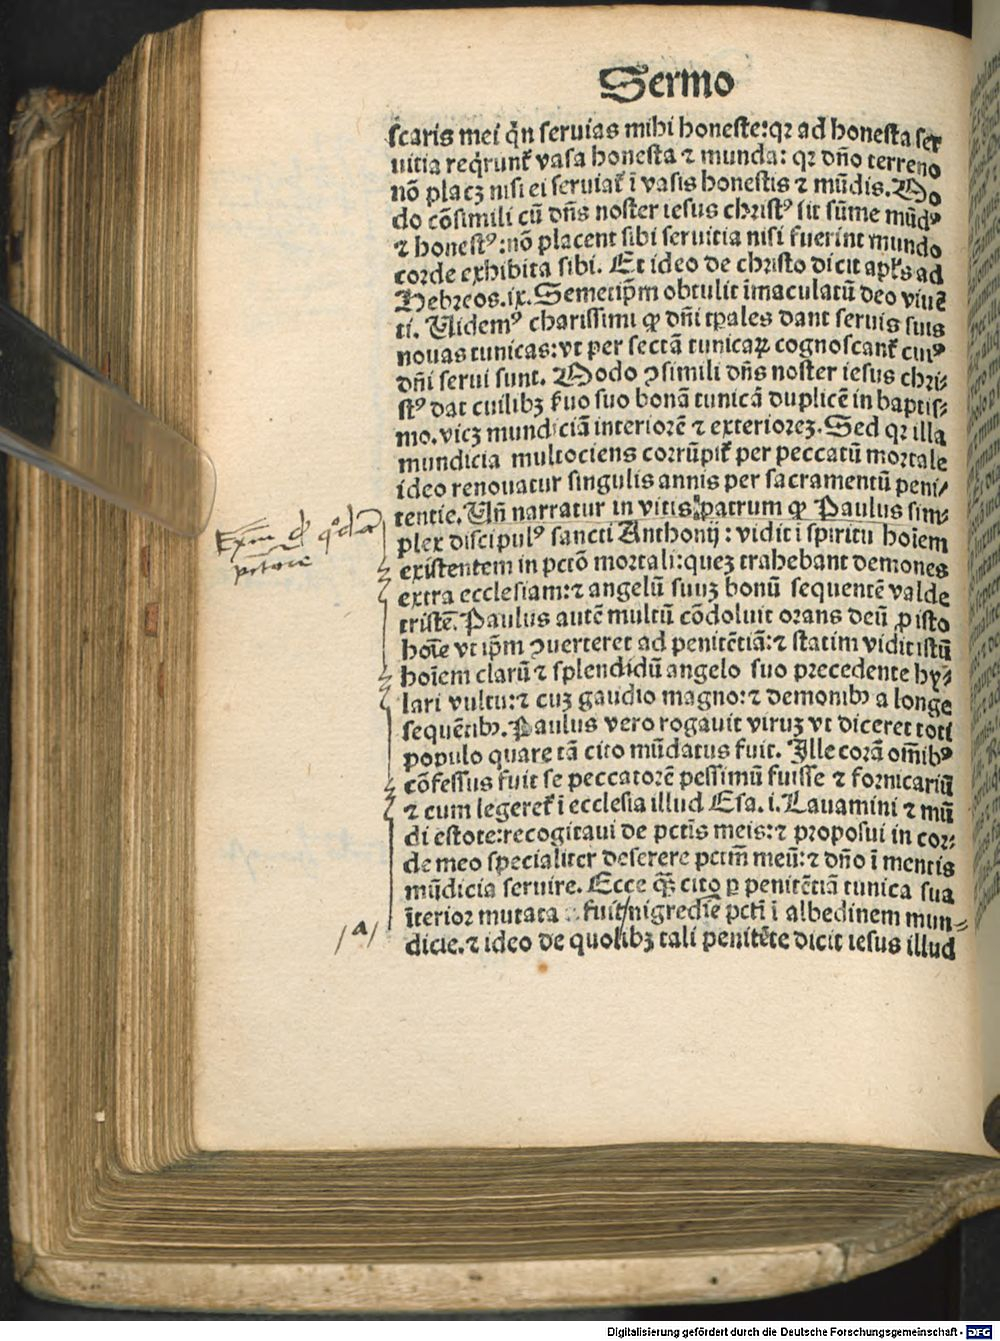 Sermo
scaris mei qñ seruias mihi honeste:qꝛ ad honesta ser
uitia reqͥrunt᷑ vasa honesta ⁊ munda: qꝛ dño terreno
nõ placꝫ nisi ei seruiat᷑ ĩ vasis honestis ⁊ mũdis. Mo
do cõsimili cũ dñs noster iesus christꝰ sit sũme mũdꝰ
⁊ honestꝰ:nõ placent sibi seruitia nisi fuerint mundo
corde exhibita sibi. Et ideo de christo dicit apl̃s ad
Hebreos.ix. Semetip̃m obtulit ĩmaculatũ deo viuẽ
ti. Uidemꝰ charissimi ꝙ dñi tp̃ales dant seruis suis
nouas tunicas:vt per sectã tunicaꝝ cognoscant᷑ cuiꝰ
dñi serui sunt. Modo ꝯsimili dñs noster iesus chri⸗
stꝰ dat cuilibꝫ s̃uo suo bonã tunicã duplicẽ in baptis⸗
mo.vicꝫ mundiciã interiorẽ ⁊ exteriorez. Sed qꝛ illa
mundicia multociens corrũpit᷑ per peccatũ mortale
ideo renouatur singulis annis per sacramentũ peni⸗
tentie. Uñ narratur in vitis patrum ꝙ Paulus sim⸗
plex discipulꝰ sancti Anthonij: vidit ĩ spiritu hoĩem
existentem in pctõ mortali:quez trahebant demones
extra ecclesiam:⁊ angelũ suuz bonũ sequentẽ valde
tristẽ. Paulus autẽ multũ cõdoluit orans deũ ꝓ isto
hoĩe vt ip̃m ꝯuerteret ad penitẽtiã:⁊ statim vidit istũ
hoĩem clarũ ⁊ splendidũ angelo suo precedente hy⸗
lari vultu:⁊ cuz gaudio magno:⁊ demonibꝰ a longe
sequẽtibꝰ. Paulus vero rogauit viruz vt diceret toti
populo quare tã cito mũdatus fuit. Ille corã om̃ibꝰ
cõfessus fuit se peccatorẽ pessimũ fuisse ⁊ fornicariũ
⁊ cum legeret᷑ ĩ ecclesia illud Esa. i. Lauamini ⁊ mũ
di estote:recogitaui de pctĩs meis:⁊ proposui in cor⸗
de meo specialiter deserere pctm̃ meũ:⁊ dño ĩ mentis
mũdicia seruire. Ecce ꝙ̃ cito ꝑ penitẽtiã tunica sua
ĩterior mutata fuit/nigredĩe pcti ĩ albedinem mun⸗
dicie.⁊ ideo de quolibꝫ tali penitẽte dicit iesus illud
/a/
Digitalisierung gefördert durch die Deutsche Forschungsgemeinschaft - DFG